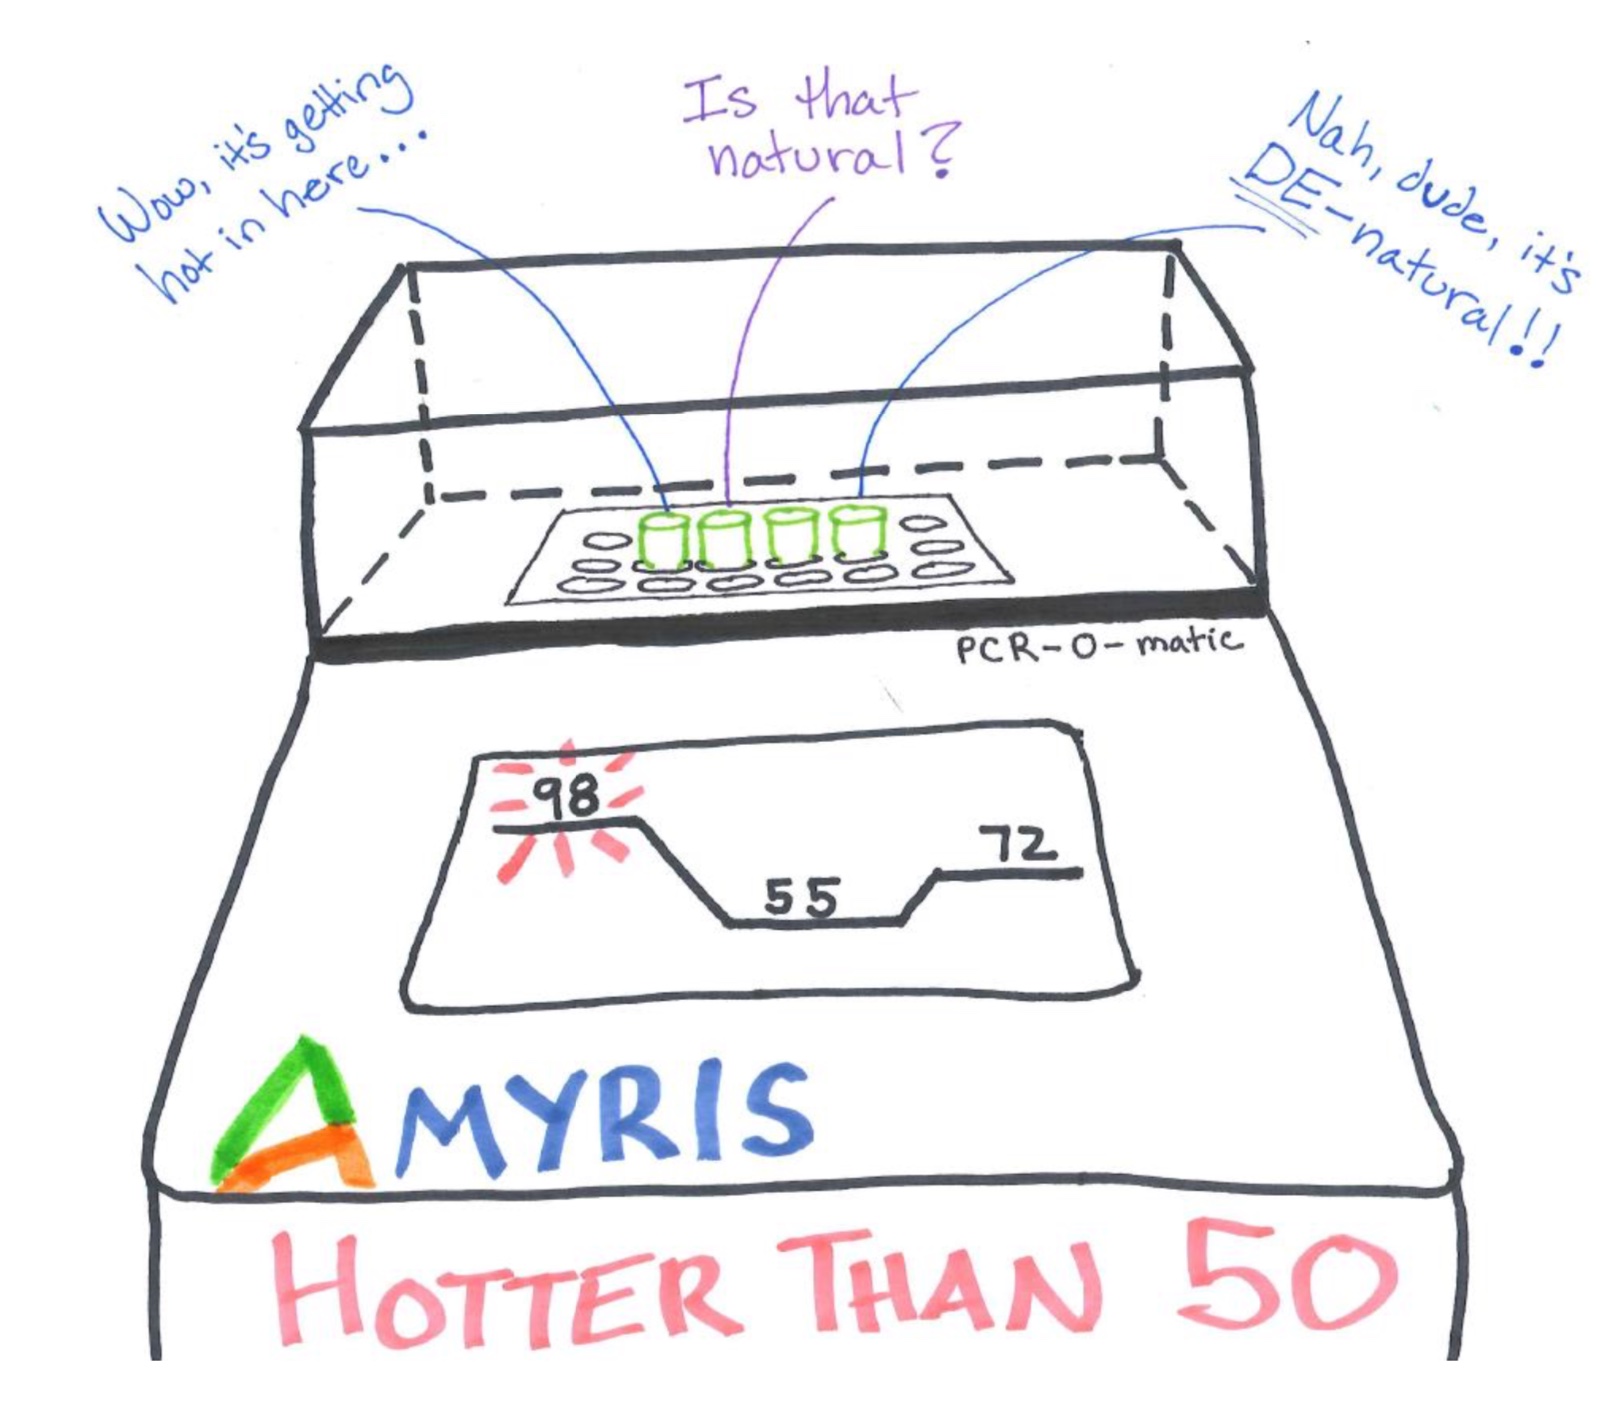 Wow, it's getting
hot in here...
Is that
natural?
Nah, dude, it's
DE-natural!!
PCR-O-matic
98
55
72
AMYRIS
HOTTER THAN 50